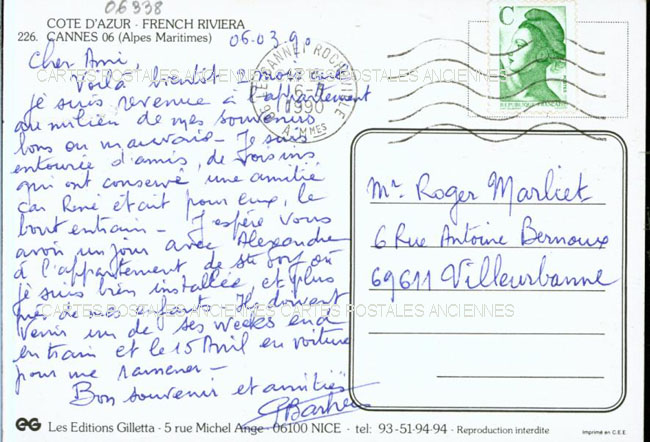 06338
COTE D'AZUR - FRENCH RIVIERA
226. CANNES 06 (Alpes Maritimes)
06-03.90
Cher Ami,
Voilà bientôt 2 mois que
je suis revenue à l'appartement
au milieu de mes souvenirs
bons ou mauvais - Je suis
entourée d'amis, de voisins
qui ont conservé une amitié
car René était pour eux, le
bout entrain - J'espère vous
avoir un jour avec Alexandre
à l'appartement de où
je suis bien installée, et plus
près de mes enfants. Ils doivent
venir un de ses weeks end
en train et le 15 Avril en voiture
pour me ramener -
Bon souvenir et amitiés
CARTES POSTALES ANCIENNES CARTES POSTALES ANCIENNES
CARTES POSTALES ANCIENNES CARTES POSTALES ANCIENNES
CANNES ROCHEVILLE
6-3
1990
A. MMES
C
Mr Roger Marliet
6 Rue Antoine Bernoux
69611 Villeurbanne
EG Les Editions Gilletta - 5 rue Michel Ange - 06100 NICE - tel: 93-51-94-94 - Reproduction interdite
Imprimé en C.E.E.